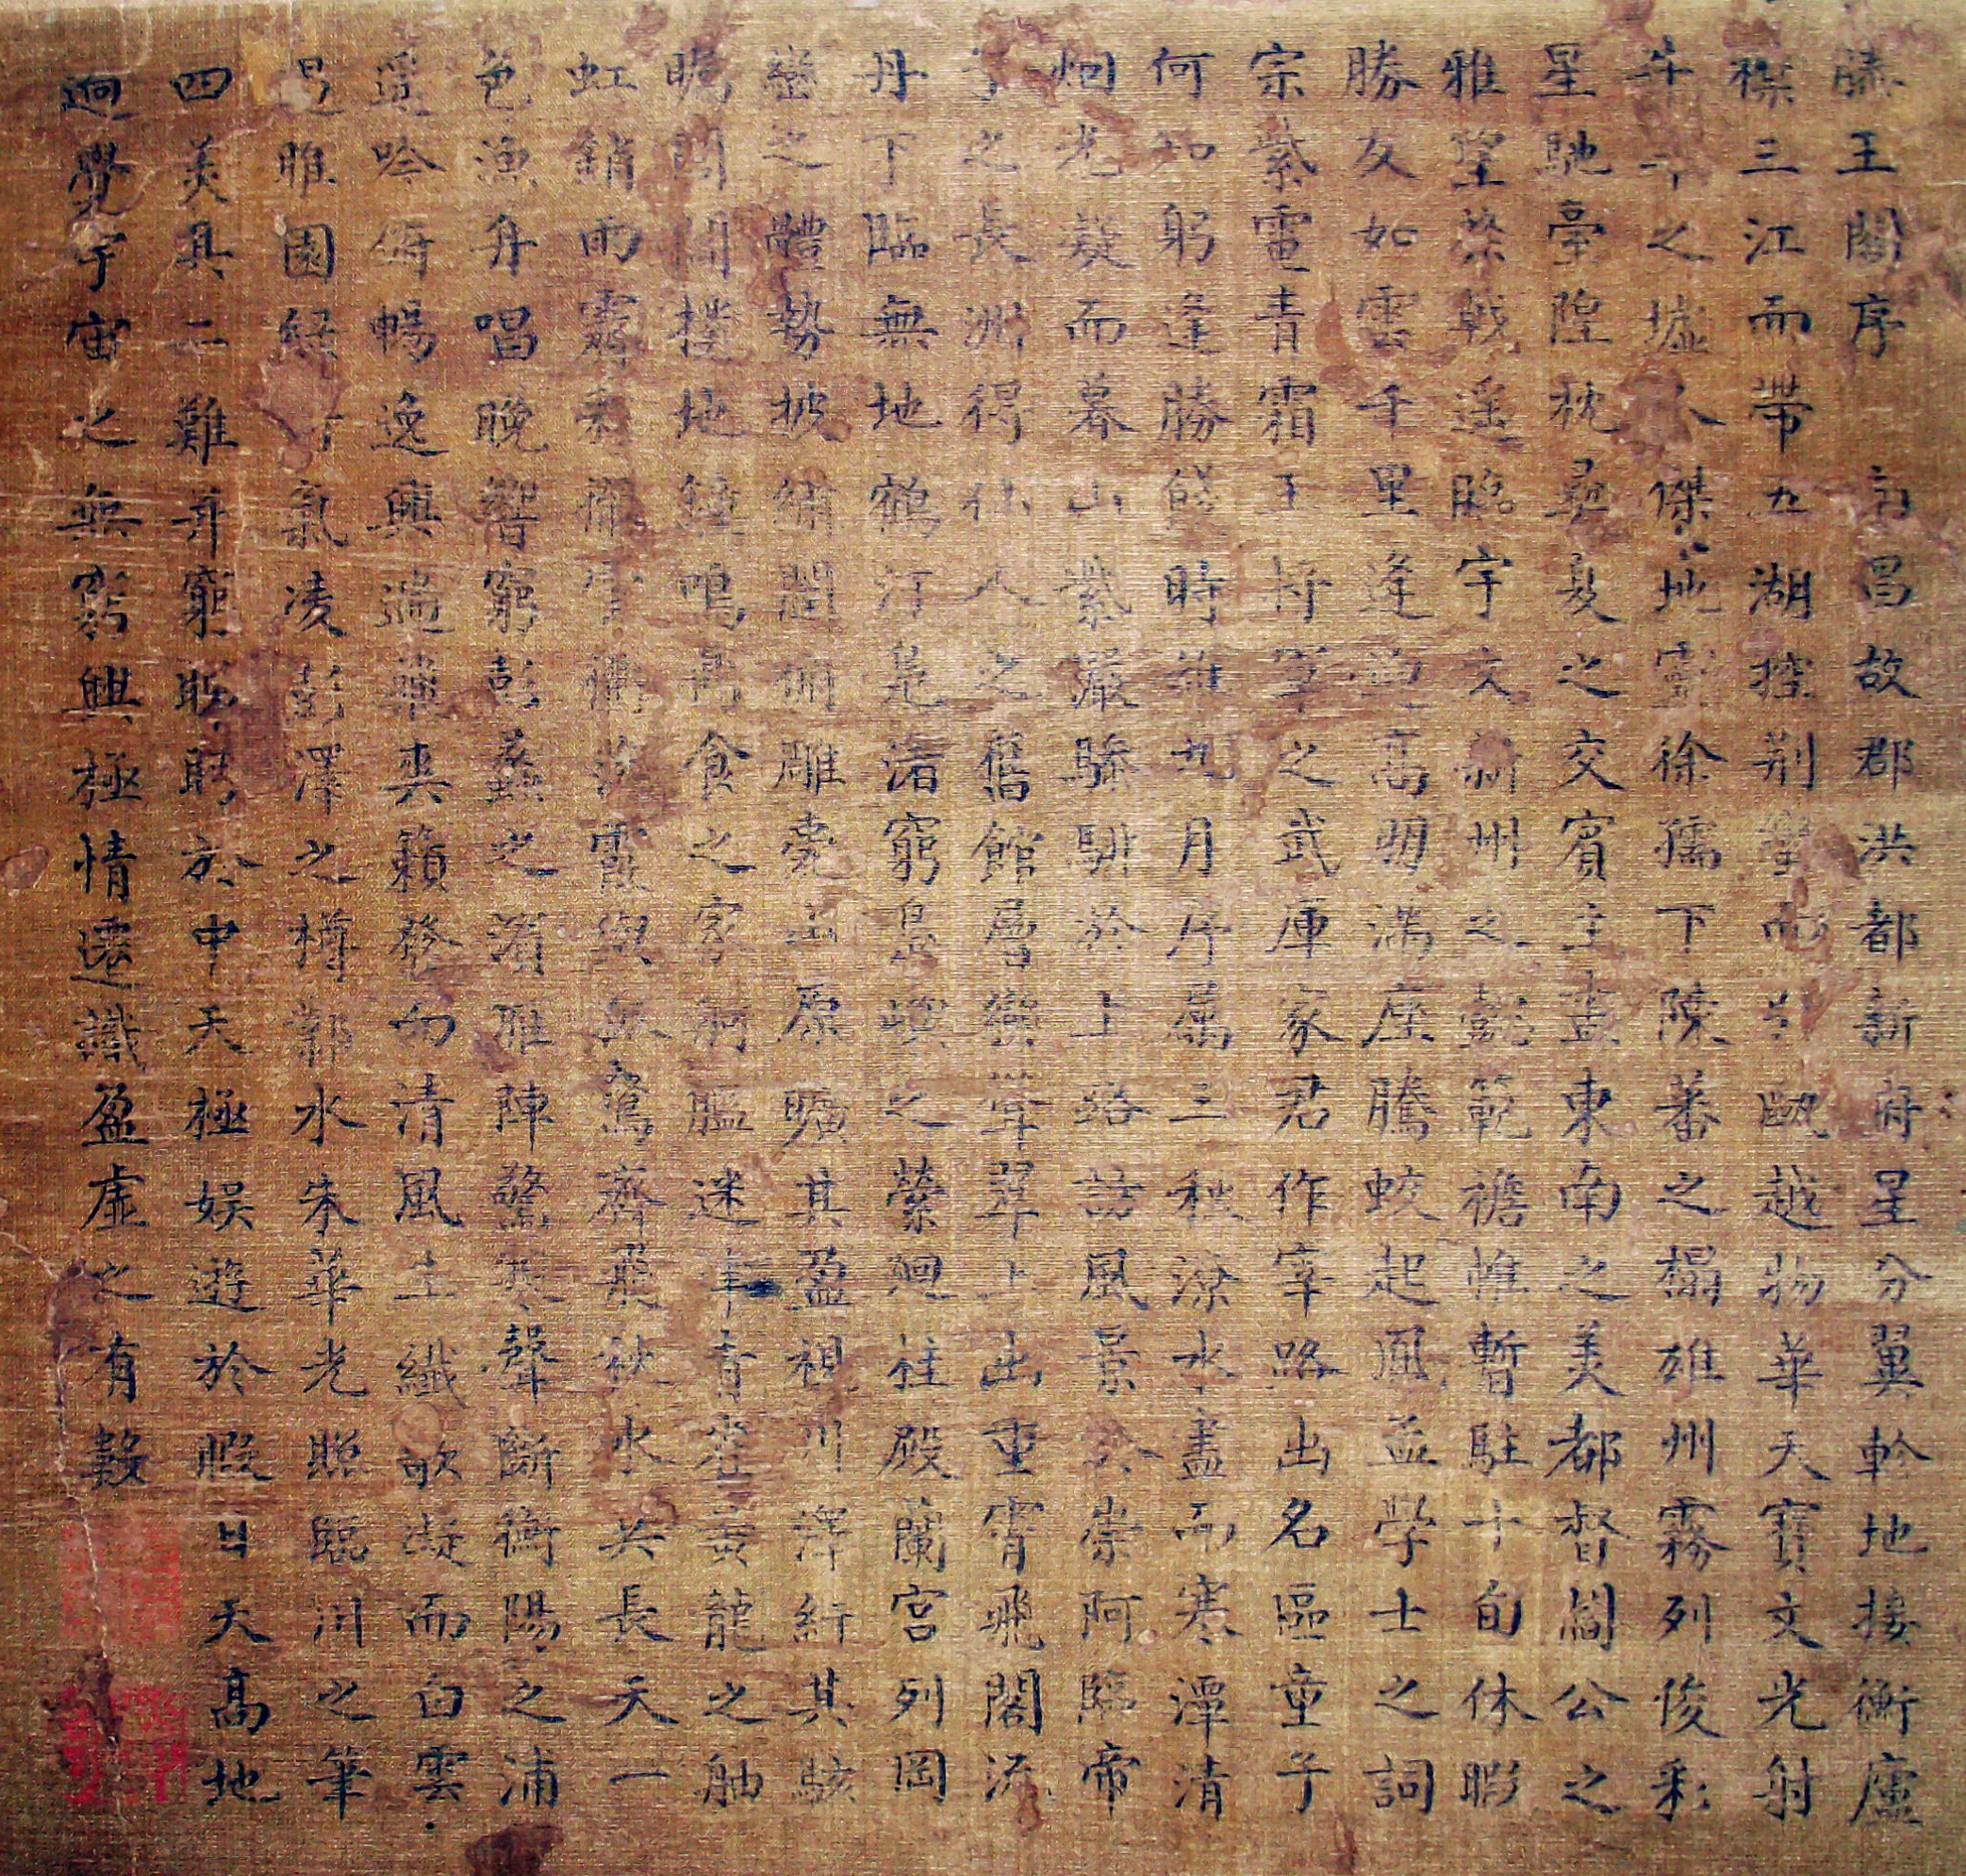 滕王閣序 南昌故郡洪都新府星分翼軫地接衡廬
襟三江而帶五湖控荊蠻而引甌越物華天寶文光射
牛斗之墟人傑地靈徐孺下陳蕃之榻雄州霧列俊彩
星馳臺隍枕夷夏之交賓主盡東南之美都督閻公之
雅望棨戟遥臨宇文新州之懿範襜帷暫駐十旬休暇
勝友如雲千里逢迎高朋滿座騰蛟起鳳孟學士之詞
宗紫電青霜王將軍之武庫家君作宰路出名區童子
何知躬逢勝餞時維九月序屬三秋潦水盡而寒潭清
烟光凝而暮山紫儼驂騑於上路訪風景於崇阿臨帝
子之長洲得仙人之舊館層巒聳翠上出重霄飛閣流
丹下臨無地鶴汀鳧渚窮島嶼之縈迴桂殿蘭宮列岡
巒之體勢披繡闥俯雕甍山原曠其盈視川澤紆其駭
矚閭閻撲地鐘鳴鼎食之家舸艦迷津青雀黃龍之舳
虹銷雨霽彩徹雲衢落霞與孤鶩齊飛秋水共長天一
色漁舟唱晚響窮彭蠡之濱雁陣驚寒聲斷衡陽之浦
遥吟俯暢逸興遄飛爽籟發而清風生纖歌凝而白雲
遏睢園綠竹氣凌彭澤之樽鄴水朱華光照臨川之筆
四美具二難并窮睇眄於中天極娛遊於暇日天高地
迥覺宇宙之無窮興極情遷識盈虛之有數